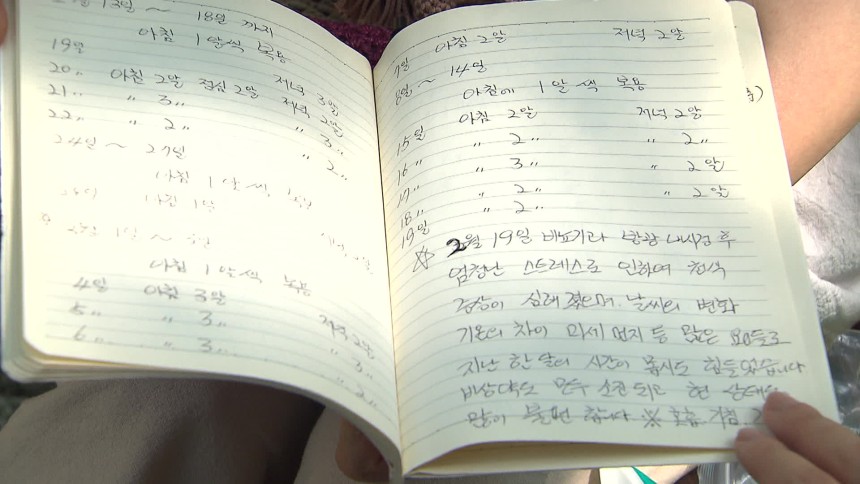 13일 ~ 18일 까지
아침 1알씩 복용
19일
20〃 아침 2알 점심 2알 저녁 3알
21〃 〃 3〃 저녁 2알
22〃 〃 2〃 〃 3〃
〃 2〃
24일 ~ 27일
아침 1알씩 복용
아침 1알
1일 ~
아침 1알씩 복용
4일 아침 3알
5〃 〃 3〃 저녁 2알
6〃 〃 3〃 〃 3〃
〃 2〃
7일 아침 2알 저녁 2알
8일 ~ 14일
아침에 1알씩 복용
15일 아침 2알 저녁 2알
16〃 〃 2〃 〃 2〃
17〃 〃 3〃 〃 2알
18〃 〃 2〃 〃 2알
19일 〃 2〃
☆ 2월 19일 비뇨기과 방광 내시경 후
엄청난 스트레스로 인하여 천식
증상이 심해졌으며, 날씨의 변화
기온의 차이 미세먼지 등 많은 요인들로
지난 한달의 시간이 몹시도 힘들었습니다
비상약도 모두 소진되고 현 상태는
많이 불편합니다 ※ 호흡, 기침